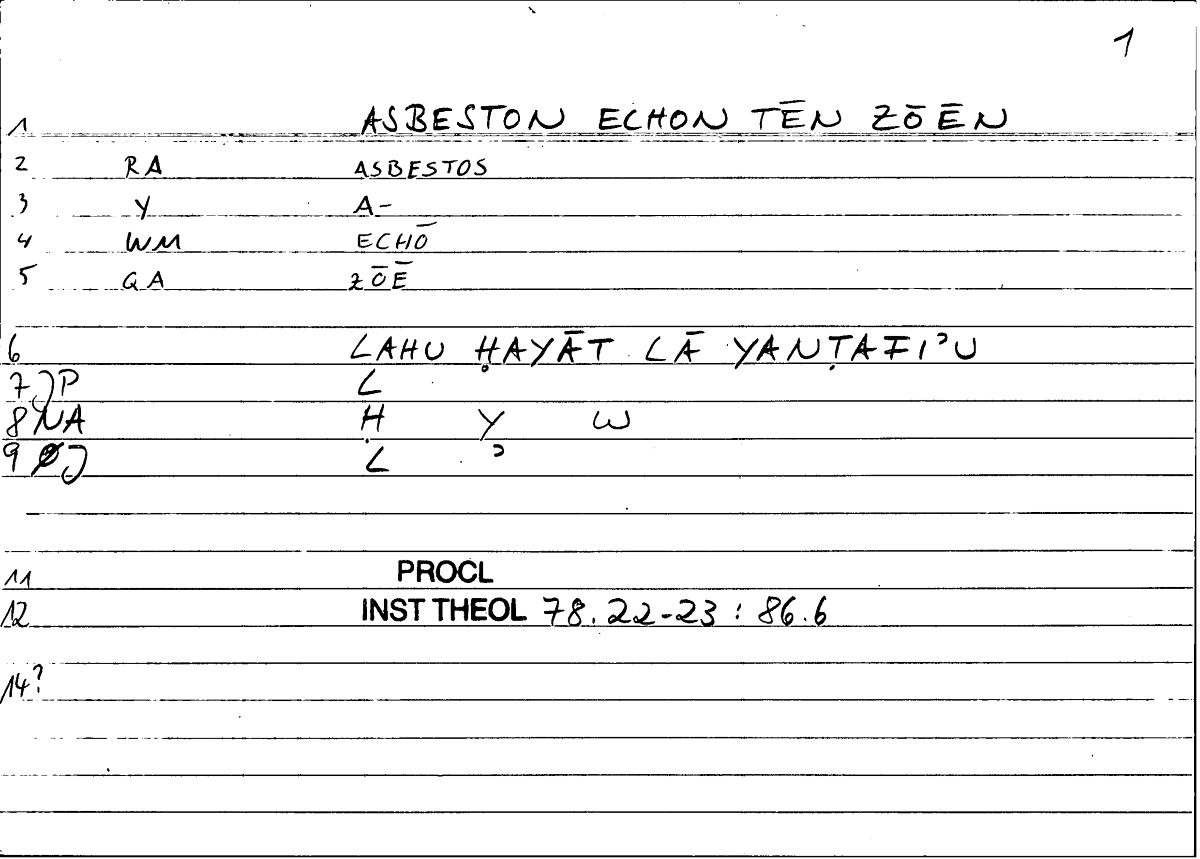 1
1 ASBESTON ECHON TĒN ZŌĒN
2 RA ASBESTOS
3 Y A-
4 WM ECHŌ
5 QA ZŌĒ
6 LAHU ḤAYĀT LĀ YANṬAFIʾU
7 JP L
8 NA Ḥ Y W
9 J L ʾ
11 PROCL
12 INST THEOL 78.22-23 : 86.6
14?